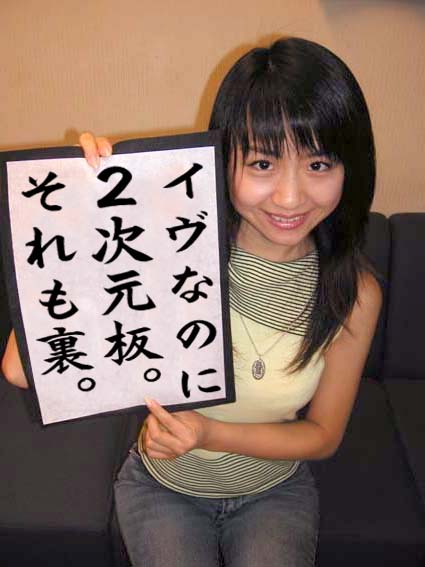 イヴなのに
２次元板。
それも裏。